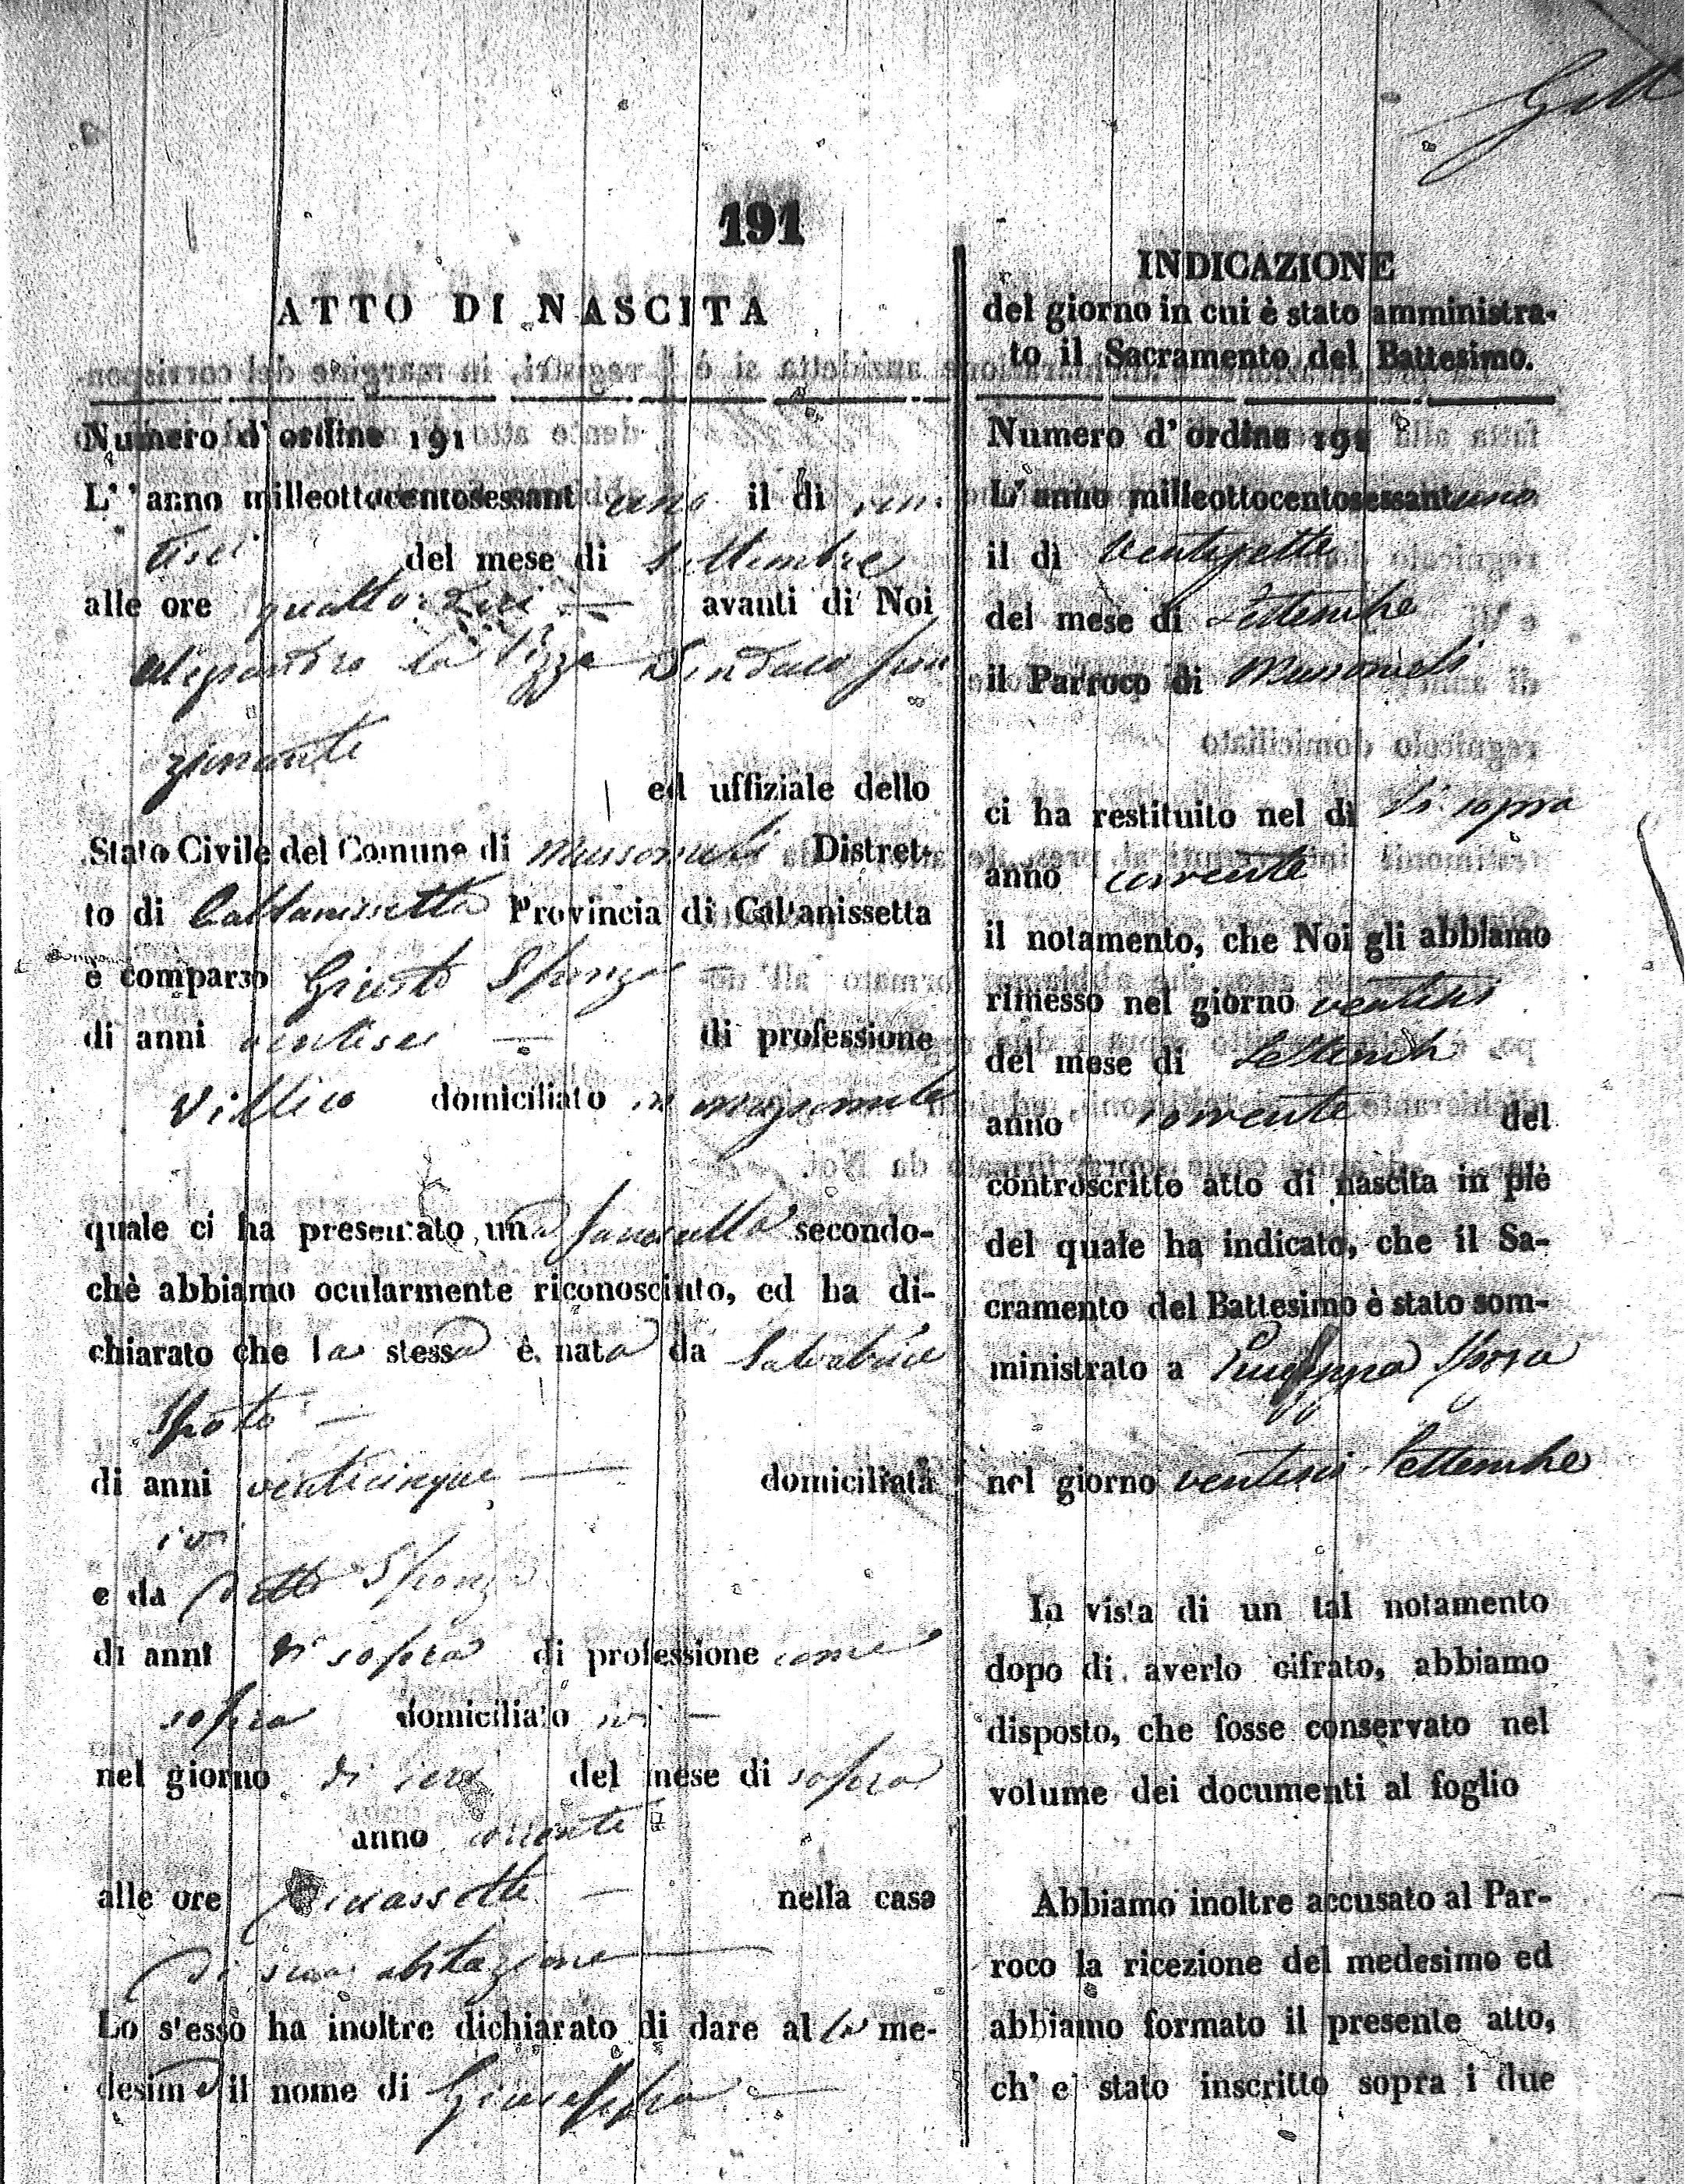 191
ATTO DI NASCITA
Numero d' ordine 191
L' anno milleottocentosessant uno il di ven
tisei del mese di Settembre
alle ore quattordici avanti di Noi
Alessandro La Pizza Sindaco fun
zionante
ed uffiziale dello
Stato Civile del Comune di Mussomeli Distret-
to di Caltanissetta Provincia di Caltanissetta
è comparso Giusto Sponza
di anni ventisei di professione
Villico domiciliato in
quale ci ha presentato una fanciulla secondo-
chè abbiamo ocularmente riconosciuto, ed ha di-
chiarato che la stessa è nata da Salvatrice
Spoto
di anni venticinque domiciliata
ivi
e da detto Sponza
di anni di sopra di professione come
sopra domiciliato ivi
nel giorno di ieri del mese di sopra
anno corrente
alle ore diciassette nella casa
di sua abitazione
Lo stesso ha inoltre dichiarato di dare al la me-
desima il nome di Giuseppa
INDICAZIONE
del giorno in cui è stato amministra-
to il Sacramento del Battesimo.
Numero d' ordine 191
L' anno milleottocentosessantuno
il di ventisette
del mese di Settembre
il Parroco di Mussomeli
ci ha restituito nel di di sopra
anno corrente
il notamento, che Noi gli abbiamo
rimesso nel giorno ventisei
del mese di Settembre
anno corrente del
controscritto atto di nascita in piè
del quale ha indicato, che il Sa-
cramento del Battesimo è stato som-
ministrato a Giuseppa
nel giorno ventisei Settembre
In vista di un tal notamento
dopo di averlo cifrato, abbiamo
disposto, che fosse conservato nel
volume dei documenti al foglio
Abbiamo inoltre accusato al Par-
roco la ricezione del medesimo ed
abbiamo formato il presente atto,
ch' e stato inscritto sopra i due